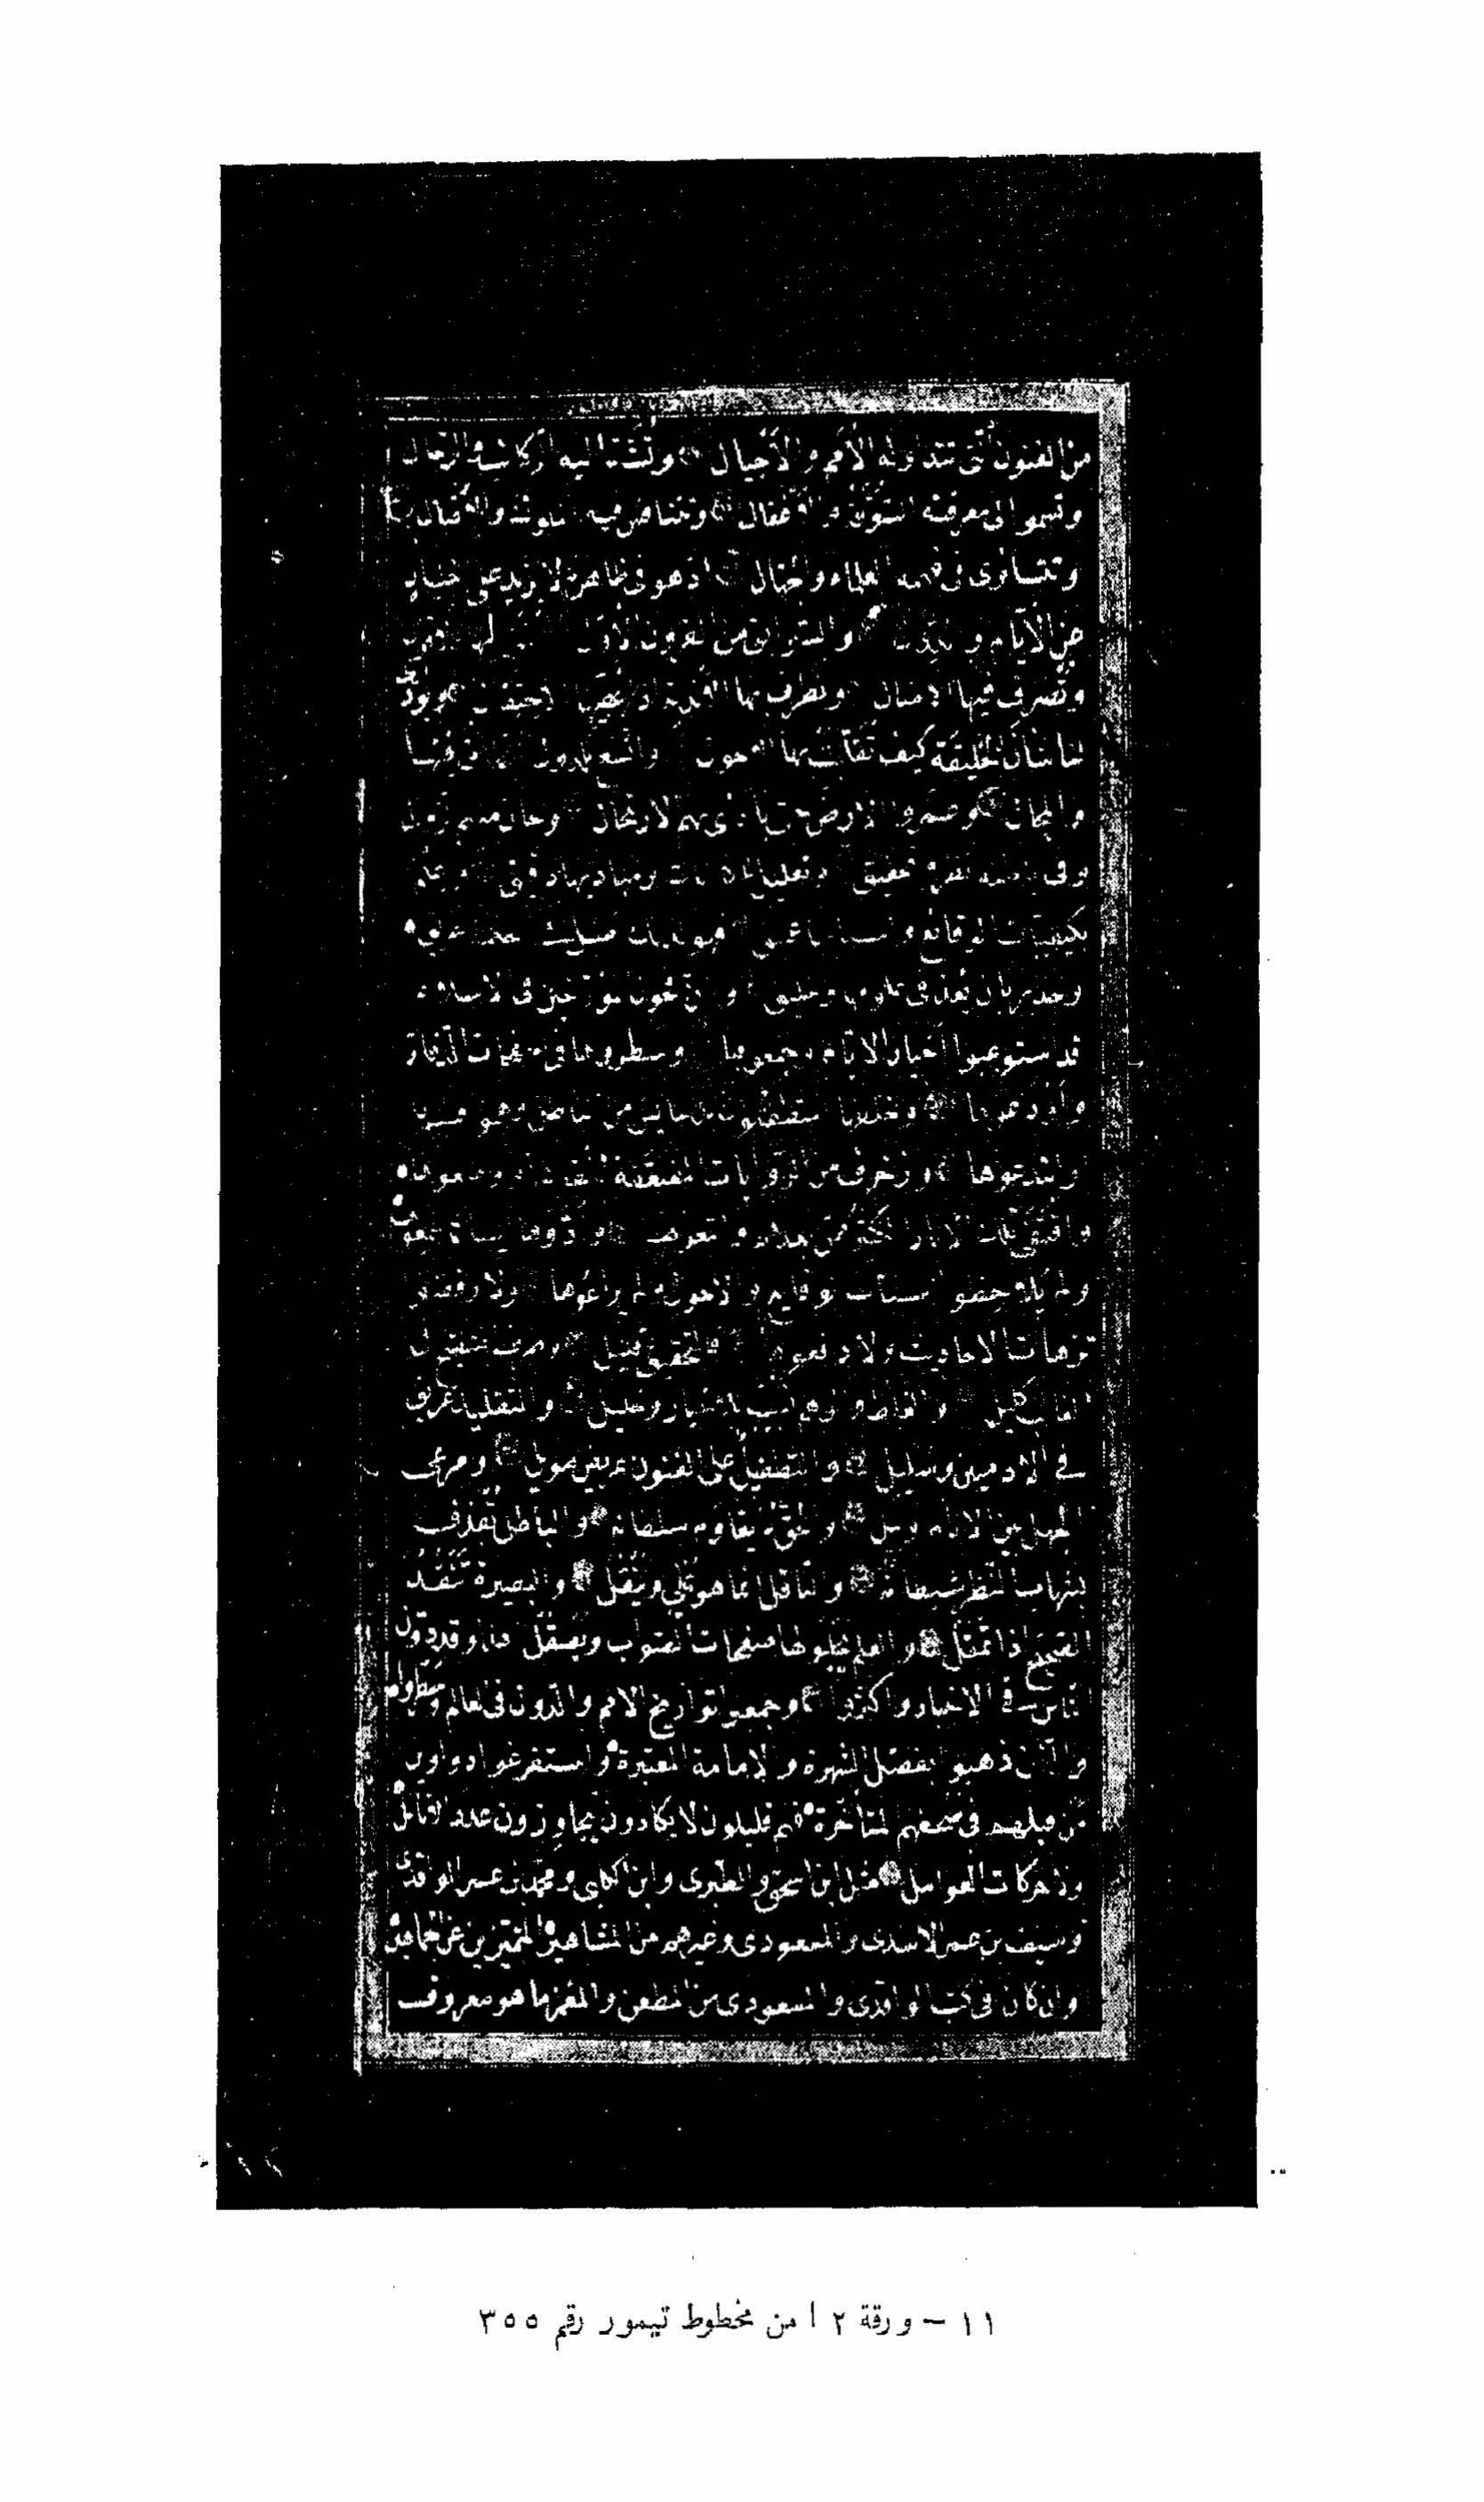 من الفنون التى تتداوله الأمم والأجيال وتشد اليه الركائب والرحال
وتسموا الى معرفته السوقة والاغفال وتتنافس فيه الملوك والاقيال
وتتساوى فى فهمه العلماء والجهال اذ هو فى ظاهره لا يزيد على اخبار
عن الأيام والدول والسوابق من القرون الأول
وتصرف فيها الامثال وتطرف بها الاندية اذا
لنا شأن الخليقة كيف تقلبت بها الاحوال واتسع للدول
والمجال وعمروا الارض حتى نادى بهم الارتحال وحان منهم الزوال
وفى تحقيق وتعليل للكائنات ومباديها دقيق وعلم
بكيفيات الوقائع واسبابها عميق فهو لذلك اصيل فى الحكمة عريق
وجدير بان يعد فى علومها وخليق وان فحول المؤرخين فى الاسلام
قد استوعبوا اخبار الايام وجمعوها وسطروها فى صفحات الدفاتر
وأودعوها وخلطها المتطفلون
وابتدعوها وزخرف من الروايات المضعفة
واقتفى تلك الاثار الكثير ممن بعدهم واتبعوها وادوها الينا كما سمعوها
ولم يلاحظوا اسباب الوقايع والاحوال ولم يراعوها ولا رفضوا
ترهات الاحاديث ولا دفعوها فالتحقيق قليل وطرف التنقيح فى
الغالب كليل والغلط والوهم نسيب للاخبار وخليل والتقليد عريق
فى الادميين وسليل والتطفل على الفنون عريض طويل ومرعى
الجهل بين الانام وبيل والحق لا يقاوم سلطانه والباطل يقذف
بشهاب النظر شيطانه والناقل انما هو يملى وينقل والبصيرة تنقد
الصحيح اذا تمقل والعلم يجلو لها صفحات الصواب ويصقل هذا وقد دون
الناس فى الاخبار واكثروا وجمعوا تواريخ الامم والدول فى العالم وسطروا
والذين ذهبوا بفضل الشهرة والامامة المعتبرة واستفرغوا دواوين
من قبلهم فى صحفهم المتأخرة هم قليلون لا يكادون يجاوزون عدد الانامل
ولا حركات العوامل مثل ابن اسحق والطبرى وابن الكلبى ومحمد بن عمر الواقدى
وسيف بن عمر الاسدى والمسعودى وغيرهم من المشاهير المتميزين عن الجماهير
وان كان فى كتب الواقدى والمسعودى من المطعن والمغمز ما هو معروف
١١ – ورقة ٢ أ من مخطوط تيمور رقم ٣٥٥